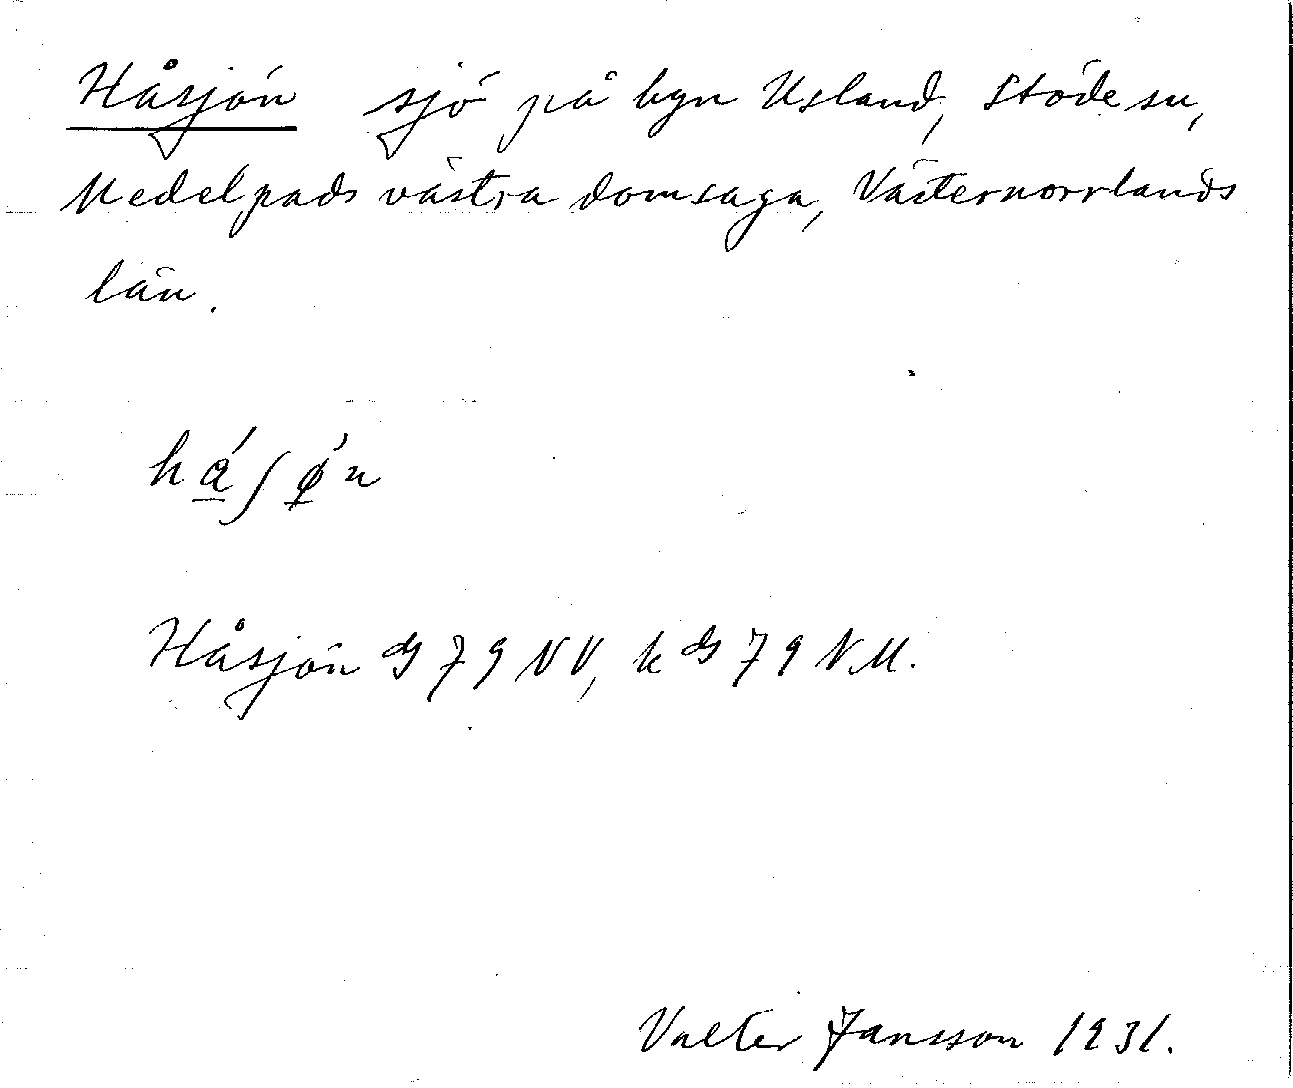 Håsjön sjö på byn Usland, Stöde sn,
Medelpads västra domsaga, Västernorrlands
län.
hǻʃø̀n
Håsjön ds 79 NV, k ds 79 NM.
Valter Jansson 1931.